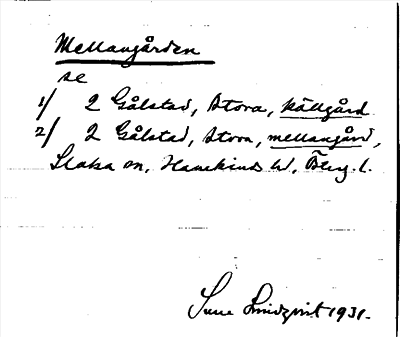 Mellangården
se
1/ 2 Gålstad, Stora, källgård
2/ 2 Gålstad, Stora, mellangård,
Slaka sn, Hanekinds hd, Össg. l.
Sune Lindqvist 1931.